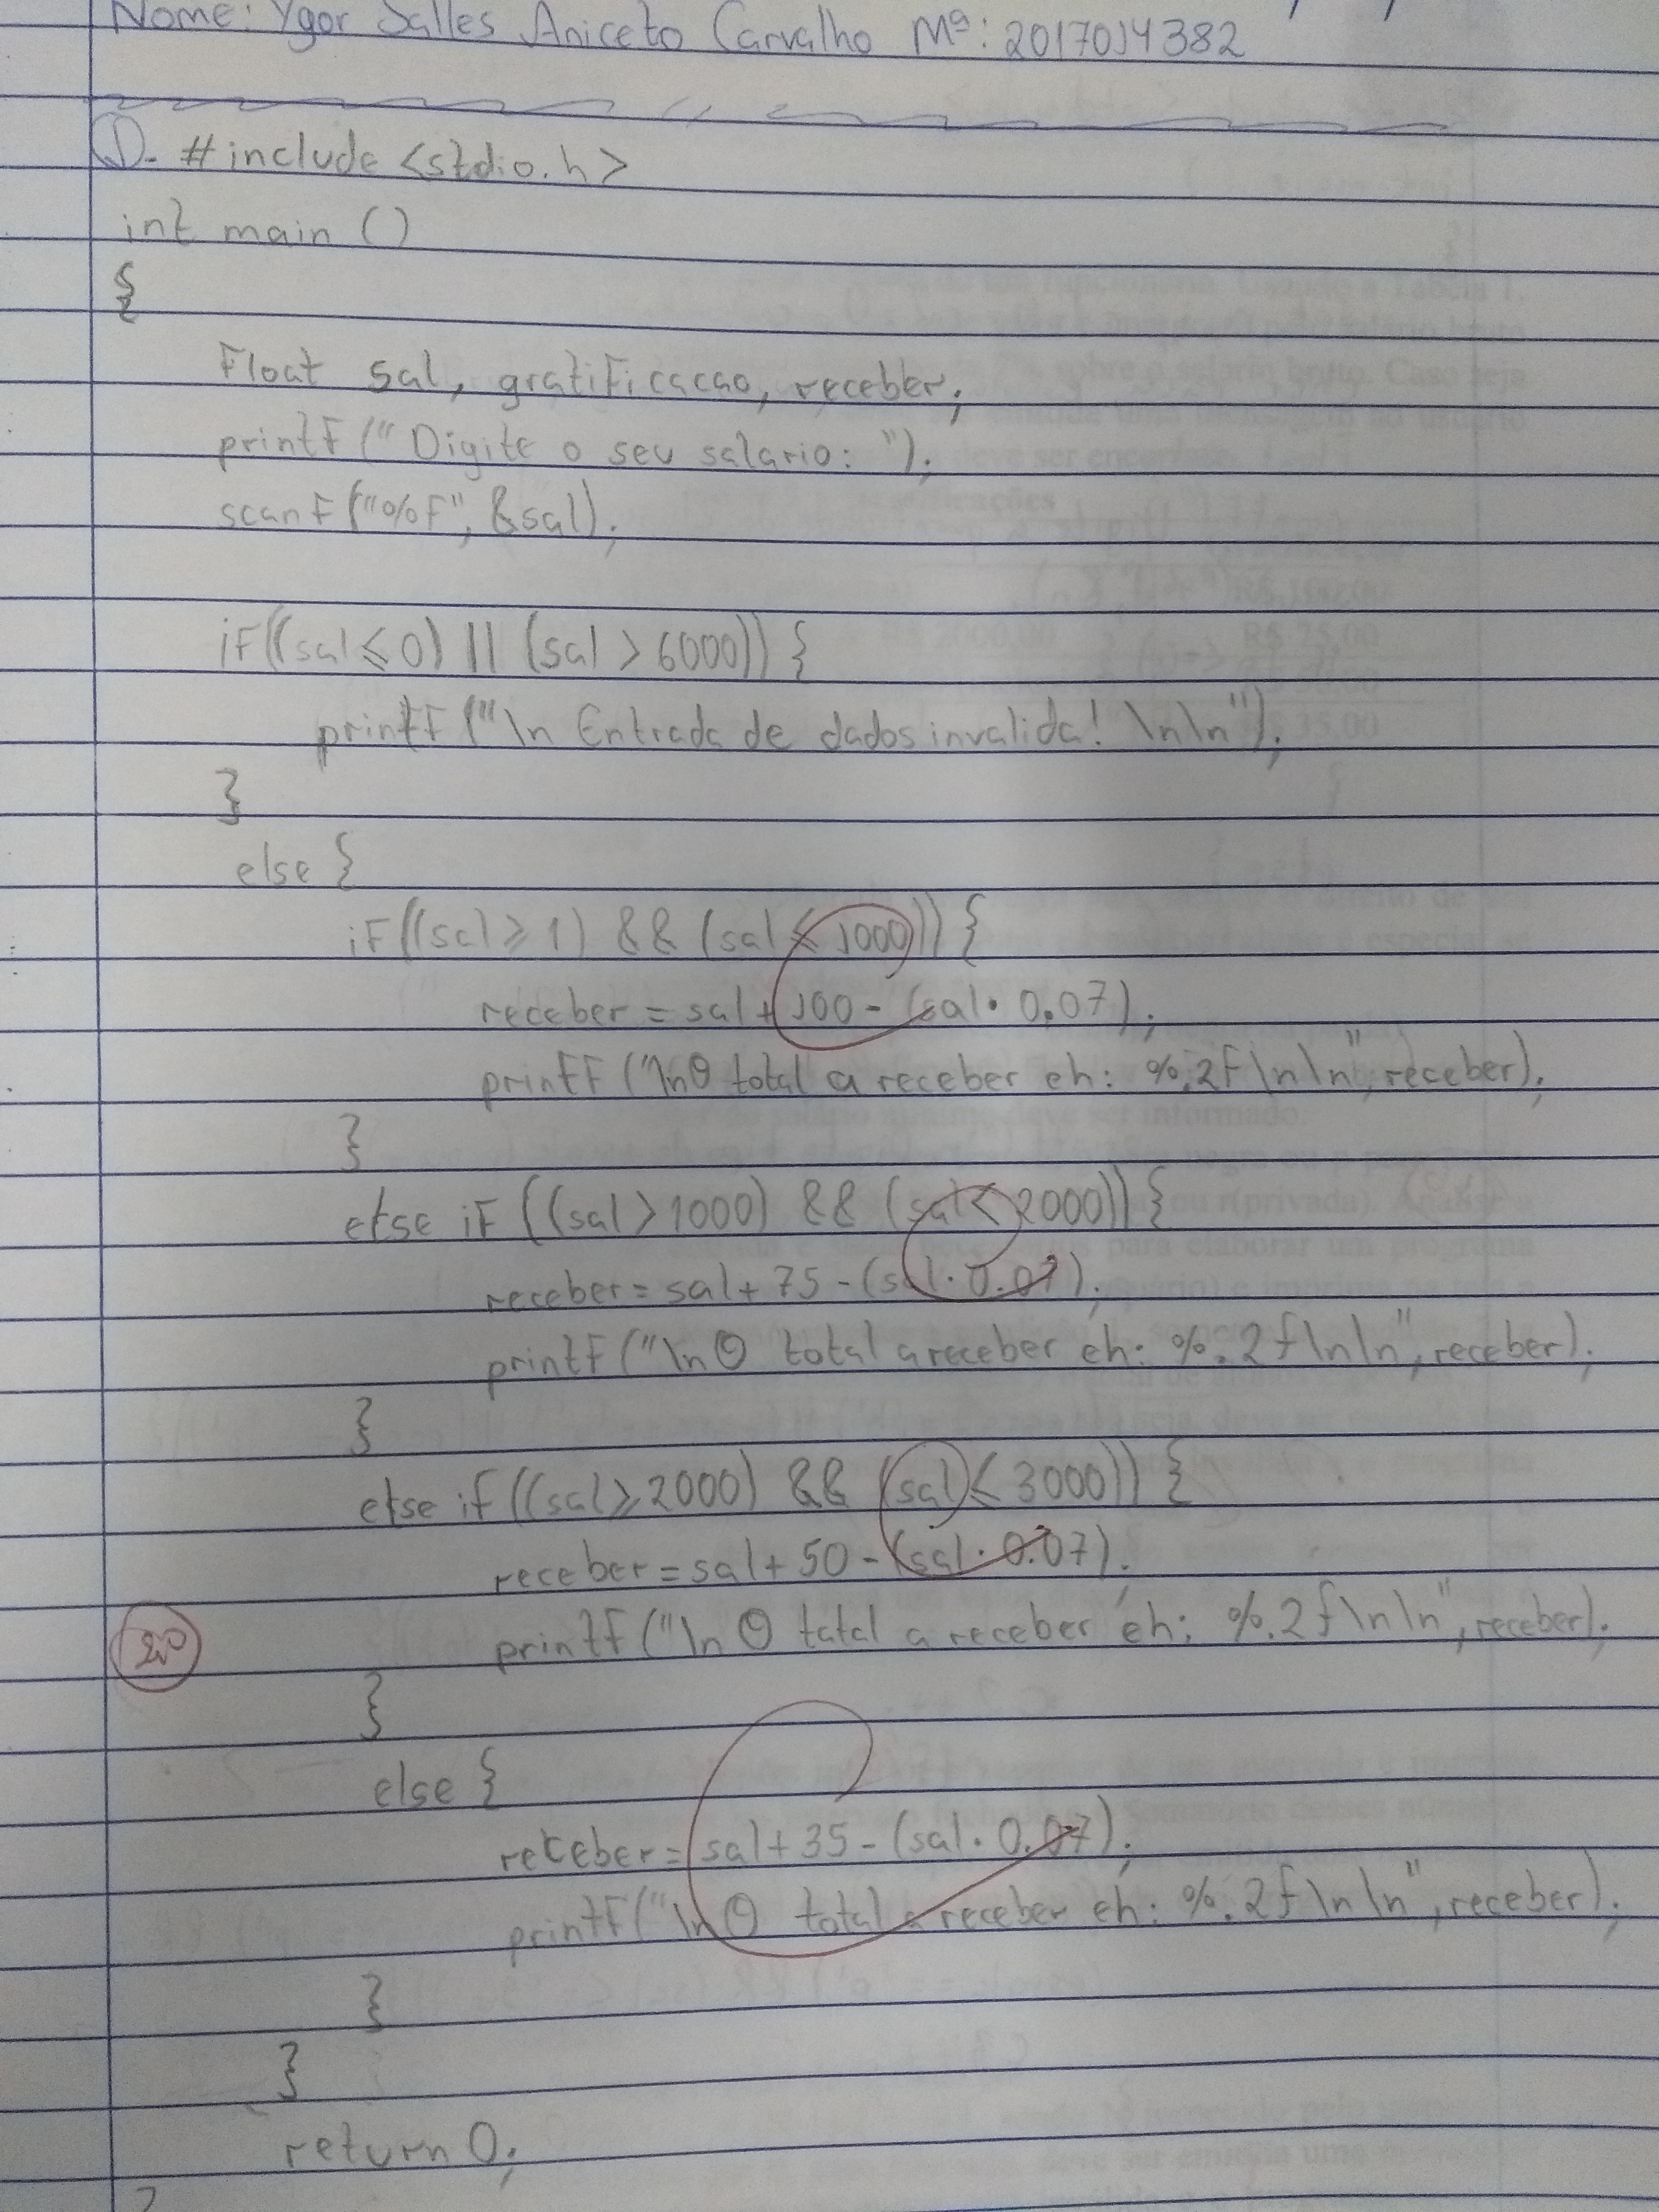 Nome: Ygor Salles Aniceto Carvalho Mª: 2017014382
1. #include <stdio.h>
int main ()
{
Float sal, gratificacao, receber;
printf ("Digite o seu salario: ");
scanf ("%f", &sal);
if((sal ≤ 0) || (sal > 6000)) {
printf ("\n Entrada de dados invalida! \n\n");
}
else {
if((sal ≥ 1) && (sal ≤ 1000)) {
receber = sal + 100 - (sal · 0.07);
printf ("\nO total a receber eh: %.2f \n\n", receber);
}
else if ((sal > 1000) && (sal < 2000)) {
receber = sal + 75 - (sal · 0.07);
printf ("\n O total a receber eh: %.2f \n\n", receber);
}
else if ((sal ≥ 2000) && (sal ≤ 3000)) {
receber = sal + 50 - (sal · 0.07);
printf ("\n O total a receber eh: %.2f \n\n", receber);
}
else {
receber = sal + 35 - (sal · 0.07);
printf ("\n O total a receber eh: %.2f \n\n", receber);
}
}
return 0;
}